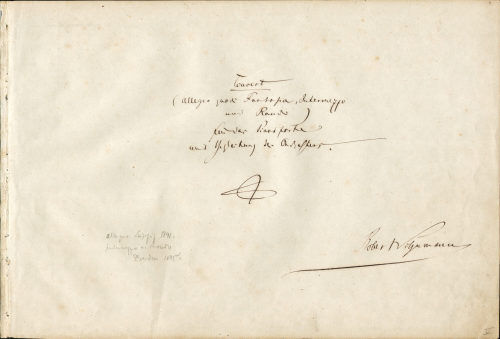 Concert
(Allegro quasi Fantasia, Intermezzo
und Rondo)
für das Pianoforte
mit Begleitung des Orchesters.
Allegro Leipzig 1841.
Intermezzo u. Rondo
Dresden 1845.
Robert Schumann